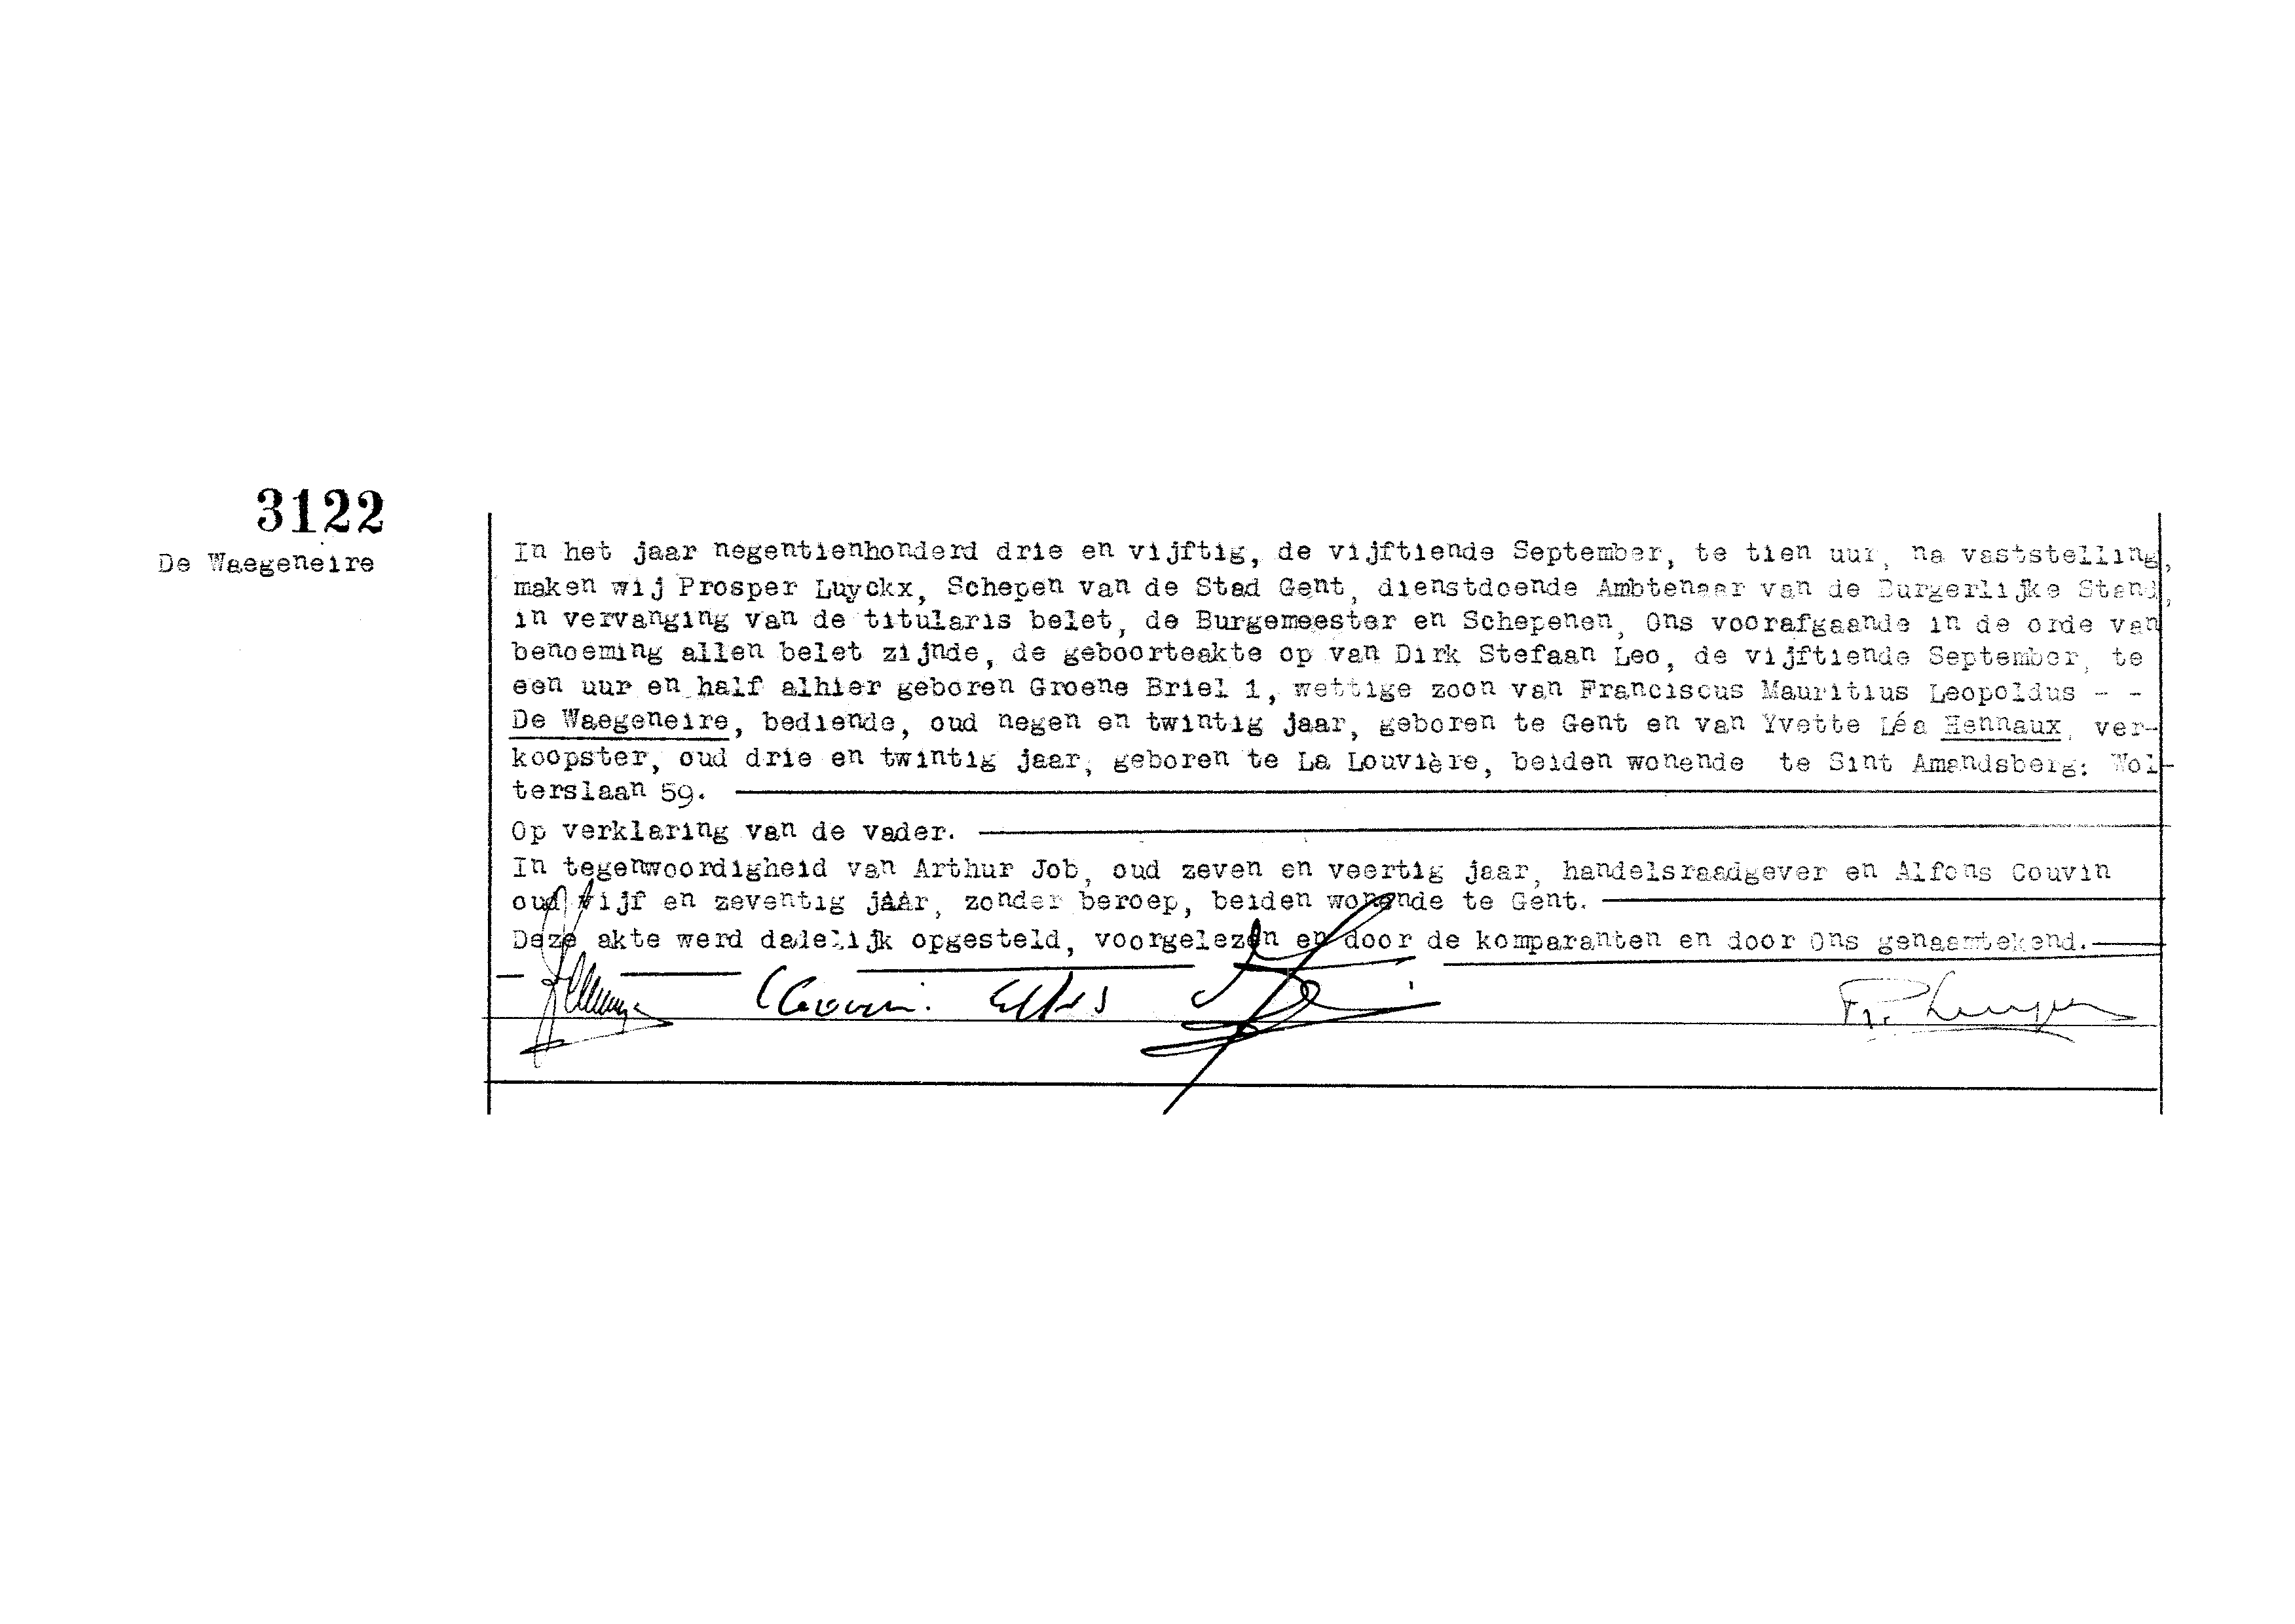 3122
De Waegeneire
In het jaar negentienhonderd drie en vijftig, de vijftiende September, te tien uur, na vaststelling,
maken wij Prosper Luyckx, Schepen van de Stad Gent, dienstdoende Ambtenaar van de Burgerlijke Stand,
in vervanging van de titularis belet, de Burgemeester en Schepenen, Ons voorafgaande in de orde van
benoeming allen belet zijnde, de geboorteakte op van Dirk Stefaan Leo, de vijftiende September, te
een uur en half alhier geboren Groene Briel 1, wettige zoon van Franciscus Mauritius Leopoldus - -
De Waegeneire, bediende, oud negen en twintig jaar, geboren te Gent en van Yvette Léa Hennaux, ver-
koopster, oud drie en twintig jaar, geboren te La Louvière, beiden wonende te Sint Amandsberg: Wol-
terslaan 59.
Op verklaring van de vader.
In tegenwoordigheid van Arthur Job, oud zeven en veertig jaar, handelsraadgever en Alfons Couvin
oud vijf en zeventig jaar, zonder beroep, beiden wonende te Gent.
Deze akte werd dadelijk opgesteld, voorgelezen en door de komparanten en door Ons genaamtekend.